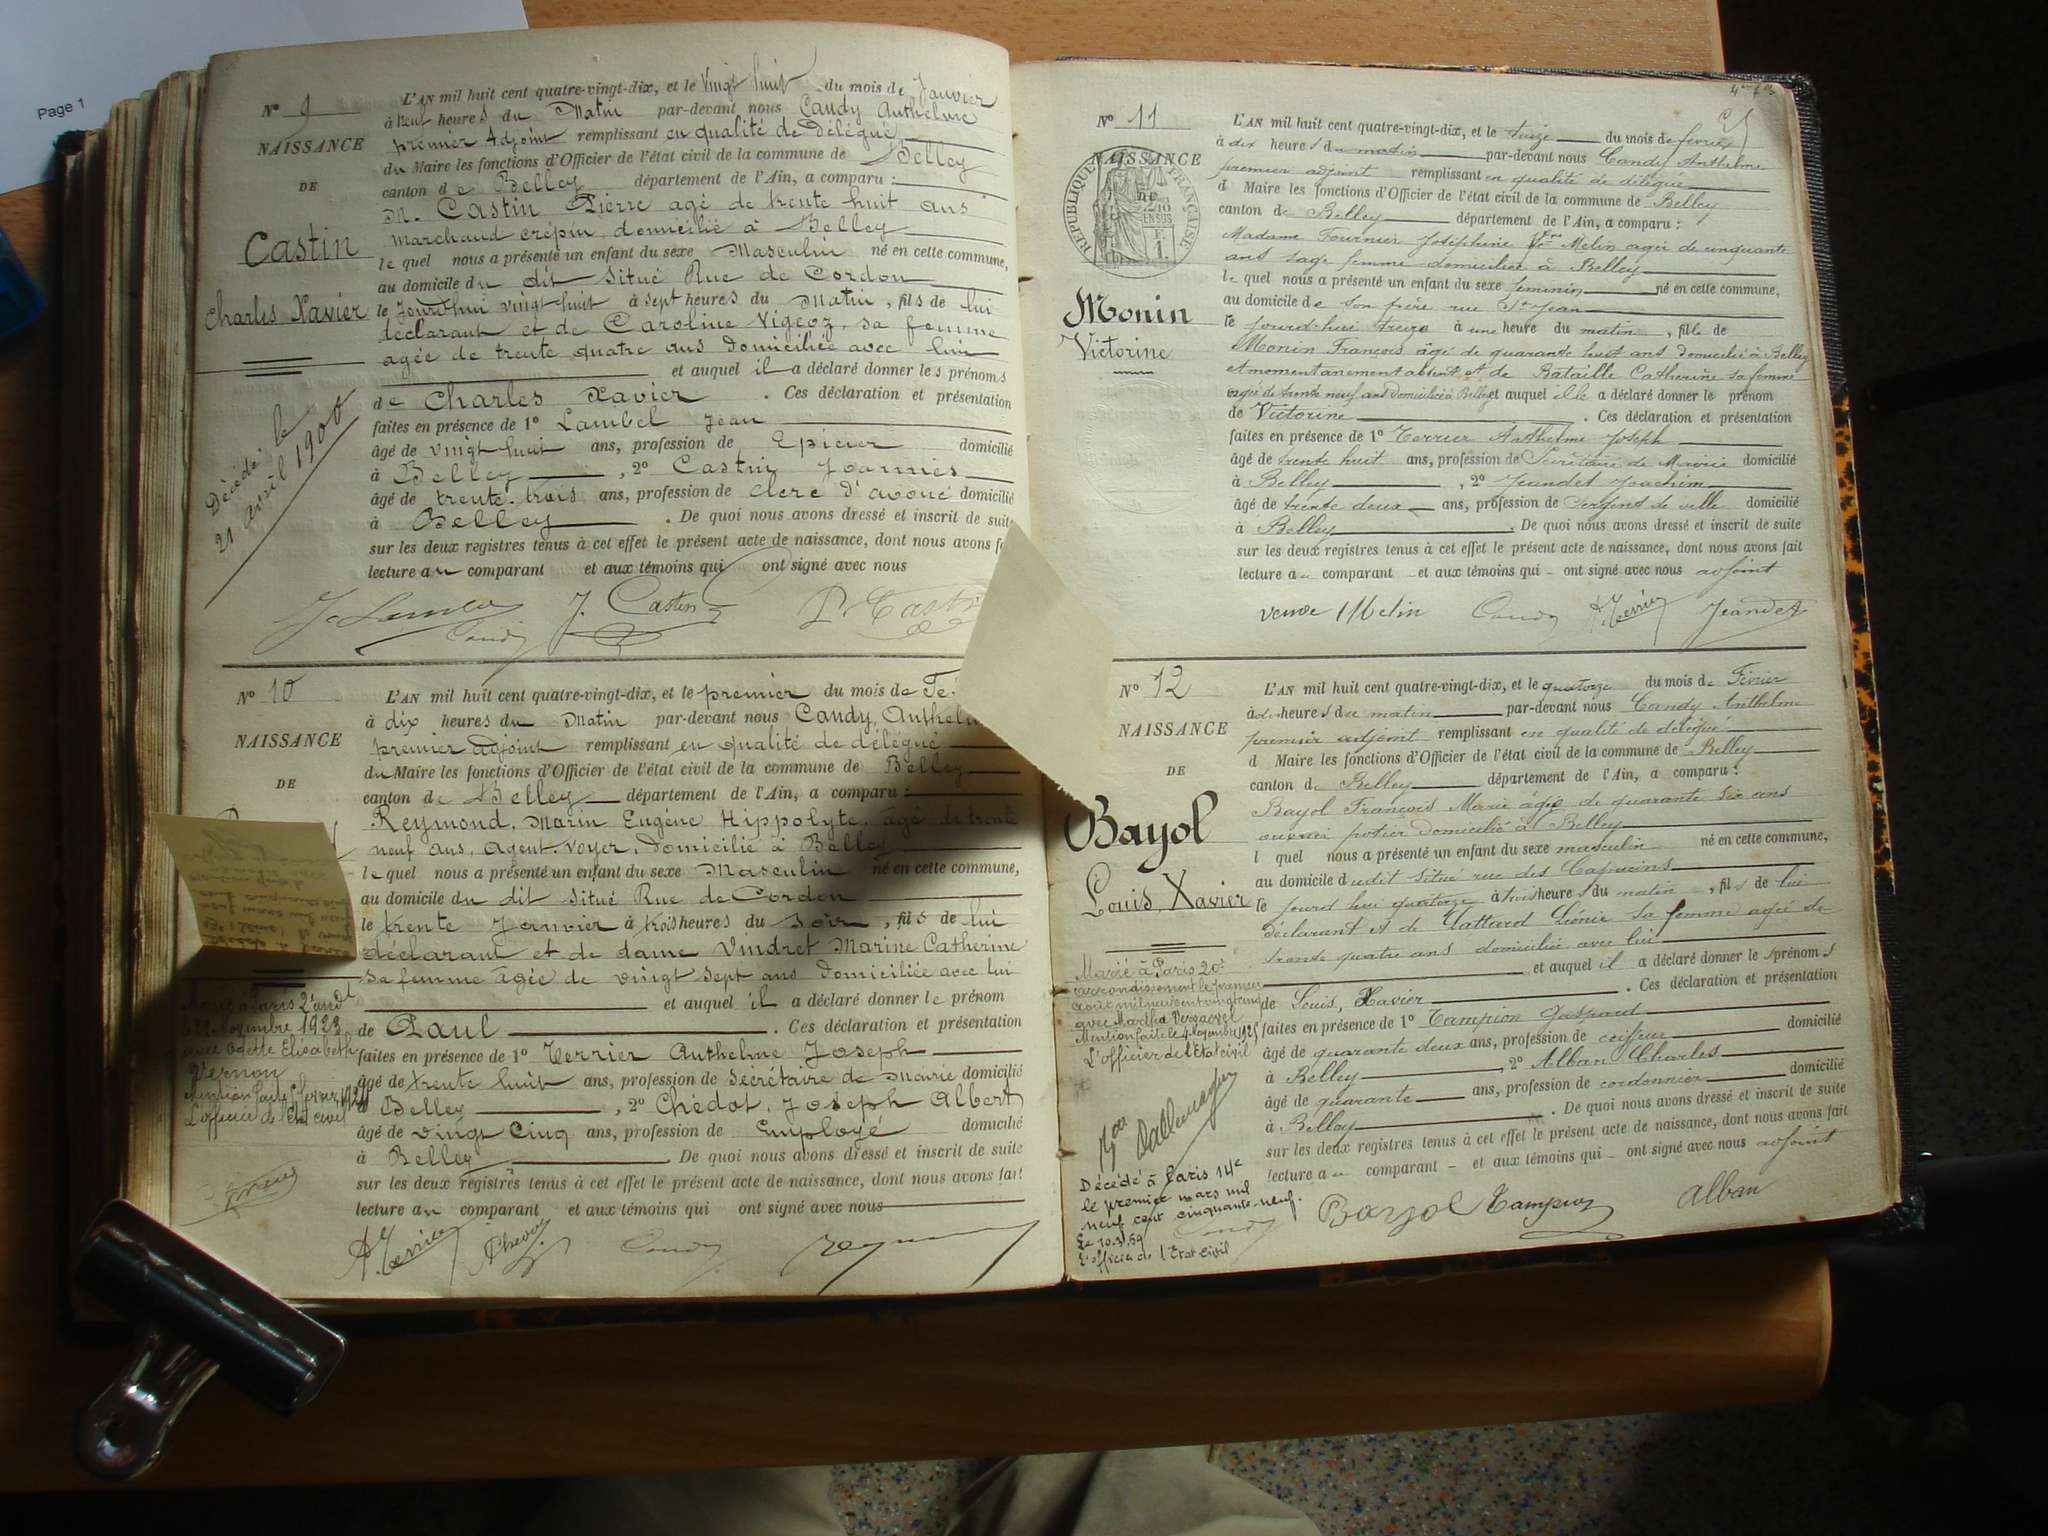 Page 1
N° 9
NAISSANCE
DE
Castin
Charles Xavier
Décédé le
21 avril 1900
L'AN mil huit cent quatre-vingt-dix, et le vingt huit du mois de Janvier
à neuf heures du Matin par-devant nous Candy Anthelme
premier Adjoint remplissant en qualité de délégué
du Maire les fonctions d'Officier de l'état civil de la commune de Belley
canton de Belley département de l'Ain, a comparu :
M. Castin Pierre agé de trente huit ans
marchand crépin, domicilié à Belley
le quel nous a présenté un enfant du sexe Masculin né en cette commune,
au domicile du dit situé Rue de Cordon
le Jourd'hui vingt huit à sept heures du Matin, fils de lui
déclarant et de Caroline Vigeoz, sa femme
agée de trente quatre ans domiciliée avec lui
et auquel il a déclaré donner les prénoms
de Charles Xavier. Ces déclaration et présentation
faites en présence de 1° Lambel Jean
âgé de vingt huit ans, profession de Epicier domicilié
à Belley, 2° Castin Joannès
âgé de trente-trois ans, profession de clerc d'avoué domicilié
à Belley. De quoi nous avons dressé et inscrit de suite
sur les deux registres tenus à cet effet le présent acte de naissance, dont nous avons
lecture au comparant et aux témoins qui ont signé avec nous
J. Castin P. Castin
Candy
N° 10
NAISSANCE
DE
Marié à Paris 2e andt
le 22 Novembre 1923
avec Odette Elisabeth
Vernon
L'officier de l'Etat civil
L'AN mil huit cent quatre-vingt-dix, et le premier du mois de
à dix heures du Matin par-devant nous Candy, Anthelme
premier adjoint remplissant en qualité de délégué
du Maire les fonctions d'Officier de l'état civil de la commune de Belley
canton de Belley département de l'Ain, a comparu :
Reymond, Marin Eugène Hippolyte, agé de trente
neuf ans, Agent-Voyer, domicilié à Belley
le quel nous a présenté un enfant du sexe Masculin né en cette commune,
au domicile du dit situé Rue de Cordon
le trente Janvier à trois heures du soir, fils de lui
déclarant et de dame Vindret Marine Catherine
sa femme âgée de vingt sept ans domiciliée avec lui
et auquel il a déclaré donner le prénom
de Paul. Ces déclaration et présentation
faites en présence de 1° Terrier Anthelme Joseph
âgé de trente huit ans, profession de Sécrétaire de Mairie domicilié
à Belley, 2° Chédot, Joseph Albert
âgé de vingt cinq ans, profession de Employé domicilié
à Belley. De quoi nous avons dressé et inscrit de suite
sur les deux registres tenus à cet effet le présent acte de naissance, dont nous avons fait
lecture au comparant et aux témoins qui ont signé avec nous
A. Terrier Candy
N° 11
NAISSANCE
RÉPUBLIQUE FRANÇAISE
Monin
Victorine
L'AN mil huit cent quatre-vingt-dix, et le treize du mois de février
à dix heures du matin par-devant nous Candy Anthelme
premier adjoint remplissant en qualité de délégué
d Maire les fonctions d'Officier de l'état civil de la commune de Belley
canton de Belley département de l'Ain, a comparu :
Madame Fournier Joséphine Vve Melin agée de cinquante
ans sage femme domiciliée à Belley
le quel nous a présenté un enfant du sexe féminin né en cette commune,
au domicile de son frère rue St Jean
le jourd'hui treize à une heure du matin, fille de
Monin François âgé de quarante huit ans domicilié à Belley
et momentanement absent et de Bataille Catherine sa femme
agée de trente neuf ans domiciliée à Belley et auquel elle a déclaré donner le prénom
de Victorine. Ces déclaration et présentation
faites en présence de 1° Terrier Anthelme Joseph
âgé de trente huit ans, profession de Secrétaire de Mairie domicilié
à Belley, 2° Jeandet Joachim
âgé de trente deux ans, profession de Sergent de ville domicilié
à Belley. De quoi nous avons dressé et inscrit de suite
sur les deux registres tenus à cet effet le présent acte de naissance, dont nous avons fait
lecture au comparant et aux témoins qui ont signé avec nous adjoint
veuve Melin Candy A. Terrier Jeandet
N° 12
NAISSANCE
DE
Bayol
Louis, Xavier
Marié à Paris 20e
arrondissement le premier
Août mil neuf cent vingt cinq
avec Martha
Mention faite le 4 Novembre 1925
L'officier de l'Etat civil
Décédé à Paris 14e
le premier mars mil
neuf cent cinquante-neuf.
Le 10.3.59
L'officier de l'Etat civil
L'AN mil huit cent quatre-vingt-dix, et le quatorze du mois de Février
à dix heures du matin par-devant nous Candy Anthelme
premier adjoint remplissant en qualité de délégué
d Maire les fonctions d'Officier de l'état civil de la commune de Belley
canton de Belley département de l'Ain, a comparu :
Bayol François Marie âgé de quarante six ans
ouvrier potier domicilié à Belley
l quel nous a présenté un enfant du sexe masculin né en cette commune,
au domicile dudit situé rue des Capucins
le jourd'hui quatorze à trois heures du matin, fils de lui
déclarant et de Gattard Léonie sa femme agée de
trente quatre ans domiciliée avec lui
et auquel il a déclaré donner les prénoms
de Louis, Xavier. Ces déclaration et présentation
faites en présence de 1° Tampion Gaspard
âgé de quarante deux ans, profession de coiffeur domicilié
à Belley, 2° Alban Charles
âgé de quarante ans, profession de cordonnier domicilié
à Belley. De quoi nous avons dressé et inscrit de suite
sur les deux registres tenus à cet effet le présent acte de naissance, dont nous avons fait
lecture au comparant et aux témoins qui ont signé avec nous adjoint
Candy Bayol Tampion Alban